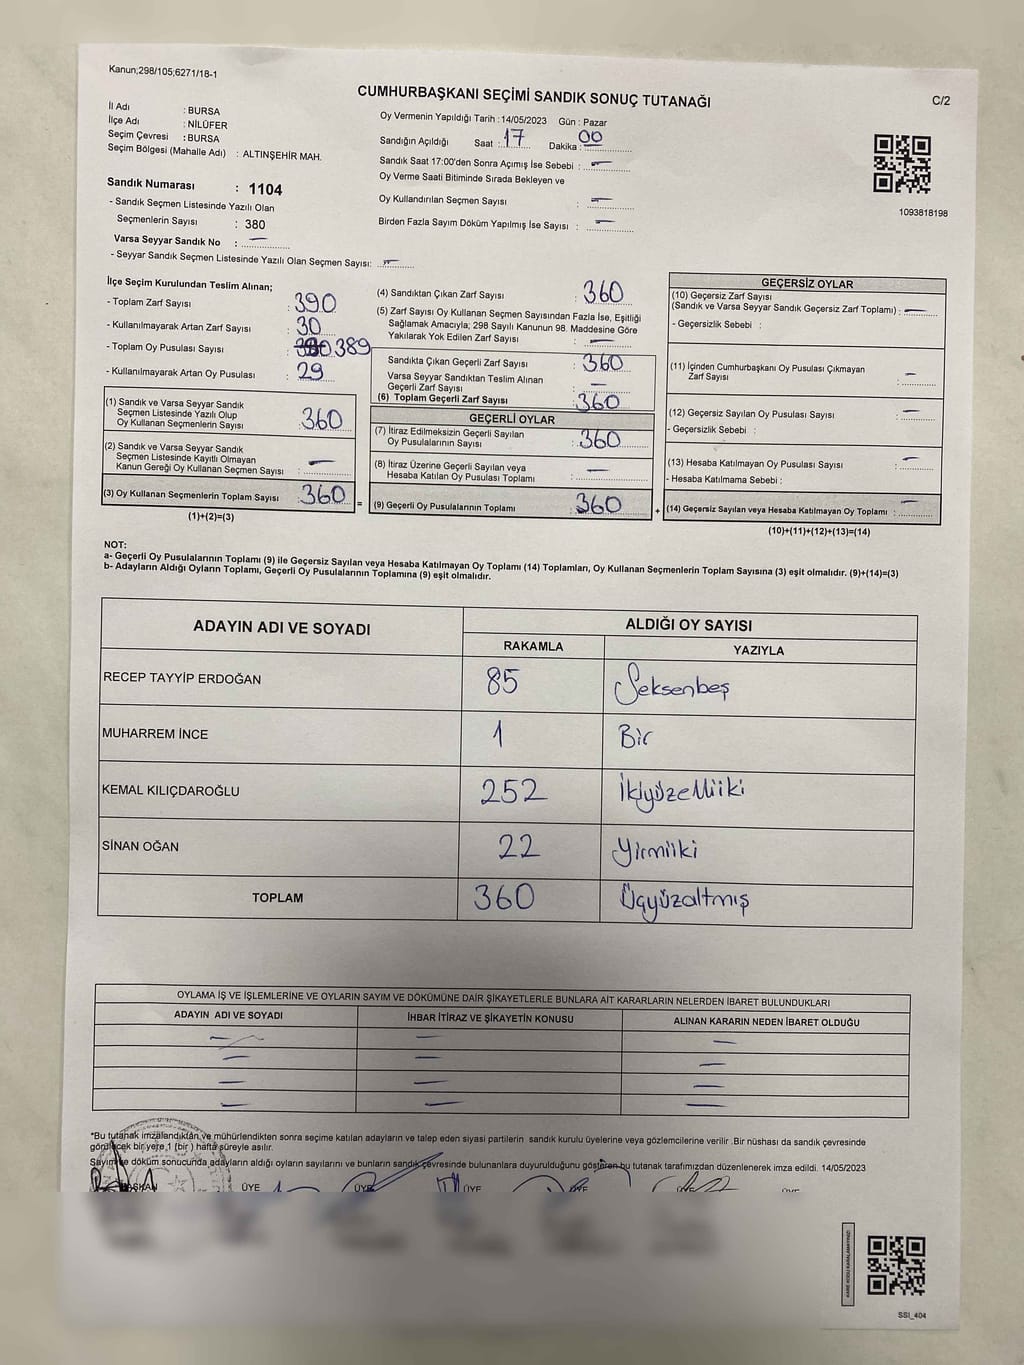 Kanun;298/105;6271/18-1
CUMHURBAŞKANI SEÇİMİ SANDIK SONUÇ TUTANAĞI
C/2
İl Adı : BURSA
İlçe Adı : NİLÜFER
Seçim Çevresi : BURSA
Seçim Bölgesi (Mahalle Adı) : ALTINŞEHİR MAH.
Sandık Numarası : 1104
- Sandık Seçmen Listesinde Yazılı Olan
Seçmenlerin Sayısı : 380
Varsa Seyyar Sandık No : —
- Seyyar Sandık Seçmen Listesinde Yazılı Olan Seçmen Sayısı: —
Oy Vermenin Yapıldığı Tarih : 14/05/2023 Gün : Pazar
Sandığın Açıldığı Saat : 17 Dakika : 00
Sandık Saat 17:00'den Sonra Açımış İse Sebebi : —
Oy Verme Saati Bitiminde Sırada Bekleyen ve
Oy Kullandırılan Seçmen Sayısı : —
Birden Fazla Sayım Döküm Yapılmış İse Sayısı : —
1093818198
İlçe Seçim Kurulundan Teslim Alınan;
- Toplam Zarf Sayısı : 390
- Kullanılmayarak Artan Zarf Sayısı : 30
- Toplam Oy Pusulası Sayısı : 389
- Kullanılmayarak Artan Oy Pusulası : 29
(1) Sandık ve Varsa Seyyar Sandık
Seçmen Listesinde Yazılı Olup
Oy Kullanan Seçmenlerin Sayısı : 360
(2) Sandık ve Varsa Seyyar Sandık
Seçmen Listesinde Kayıtlı Olmayan
Kanun Gereği Oy Kullanan Seçmen Sayısı : —
(3) Oy Kullanan Seçmenlerin Toplam Sayısı : 360 =
(1)+(2)=(3)
(4) Sandıktan Çıkan Zarf Sayısı : 360
(5) Zarf Sayısı Oy Kullanan Seçmen Sayısından Fazla İse, Eşitliği
Sağlamak Amacıyla; 298 Sayılı Kanunun 98. Maddesine Göre
Yakılarak Yok Edilen Zarf Sayısı : —
Sandıkta Çıkan Geçerli Zarf Sayısı : 360
Varsa Seyyar Sandıktan Teslim Alınan
Geçerli Zarf Sayısı : —
(6) Toplam Geçerli Zarf Sayısı : 360
GEÇERLİ OYLAR
(7) İtiraz Edilmeksizin Geçerli Sayılan
Oy Pusulalarının Sayısı : 360
(8) İtiraz Üzerine Geçerli Sayılan veya
Hesaba Katılan Oy Pusulası Toplamı : —
(9) Geçerli Oy Pusulalarının Toplamı : 360 +
GEÇERSİZ OYLAR
(10) Geçersiz Zarf Sayısı
(Sandık ve Varsa Seyyar Sandık Geçersiz Zarf Toplamı) : —
- Geçersizlik Sebebi :
(11) İçinden Cumhurbaşkanı Oy Pusulası Çıkmayan
Zarf Sayısı : —
(12) Geçersiz Sayılan Oy Pusulası Sayısı : —
- Geçersizlik Sebebi :
(13) Hesaba Katılmayan Oy Pusulası Sayısı : —
- Hesaba Katılmama Sebebi :
(14) Geçersiz Sayılan veya Hesaba Katılmayan Oy Toplamı : —
(10)+(11)+(12)+(13)=(14)
NOT:
a- Geçerli Oy Pusulalarının Toplamı (9) ile Geçersiz Sayılan veya Hesaba Katılmayan Oy Toplamı (14) Toplamları, Oy Kullanan Seçmenlerin Toplam Sayısına (3) eşit olmalıdır. (9)+(14)=(3)
b- Adayların Aldığı Oyların Toplamı, Geçerli Oy Pusulalarının Toplamına (9) eşit olmalıdır.
ADAYIN ADI VE SOYADI ALDIĞI OY SAYISI
RAKAMLA YAZIYLA
RECEP TAYYİP ERDOĞAN 85 Seksenbeş
MUHARREM İNCE 1 Bir
KEMAL KILIÇDAROĞLU 252 İkiyüzelliiki
SİNAN OĞAN 22 Yirmiiki
TOPLAM 360 Üçyüzaltmış
OYLAMA İŞ VE İŞLEMLERİNE VE OYLARIN SAYIM VE DÖKÜMÜNE DAİR ŞİKAYETLERLE BUNLARA AİT KARARLARIN NELERDEN İBARET BULUNDUKLARI
ADAYIN ADI VE SOYADI İHBAR İTİRAZ VE ŞİKAYETİN KONUSU ALINAN KARARIN NEDEN İBARET OLDUĞU
— — —
— — —
— — —
— — —
*Bu tutanak imzalandıktan ve mühürlendikten sonra seçime katılan adayların ve talep eden siyasi partilerin sandık kurulu üyelerine veya gözlemcilerine verilir .Bir nüshası da sandık çevresinde
görülecek bir yere 1 (bir ) hafta süreyle asılır.
Sayım ve döküm sonucunda adayların aldığı oyların sayılarını ve bunların sandık çevresinde bulunanlara duyurulduğunu gösteren bu tutanak tarafımızdan düzenlenerek imza edildi. 14/05/2023
BAŞKAN ÜYE ÜYE ÜYE ÜYE ÜYE ÜYE
SSI_404